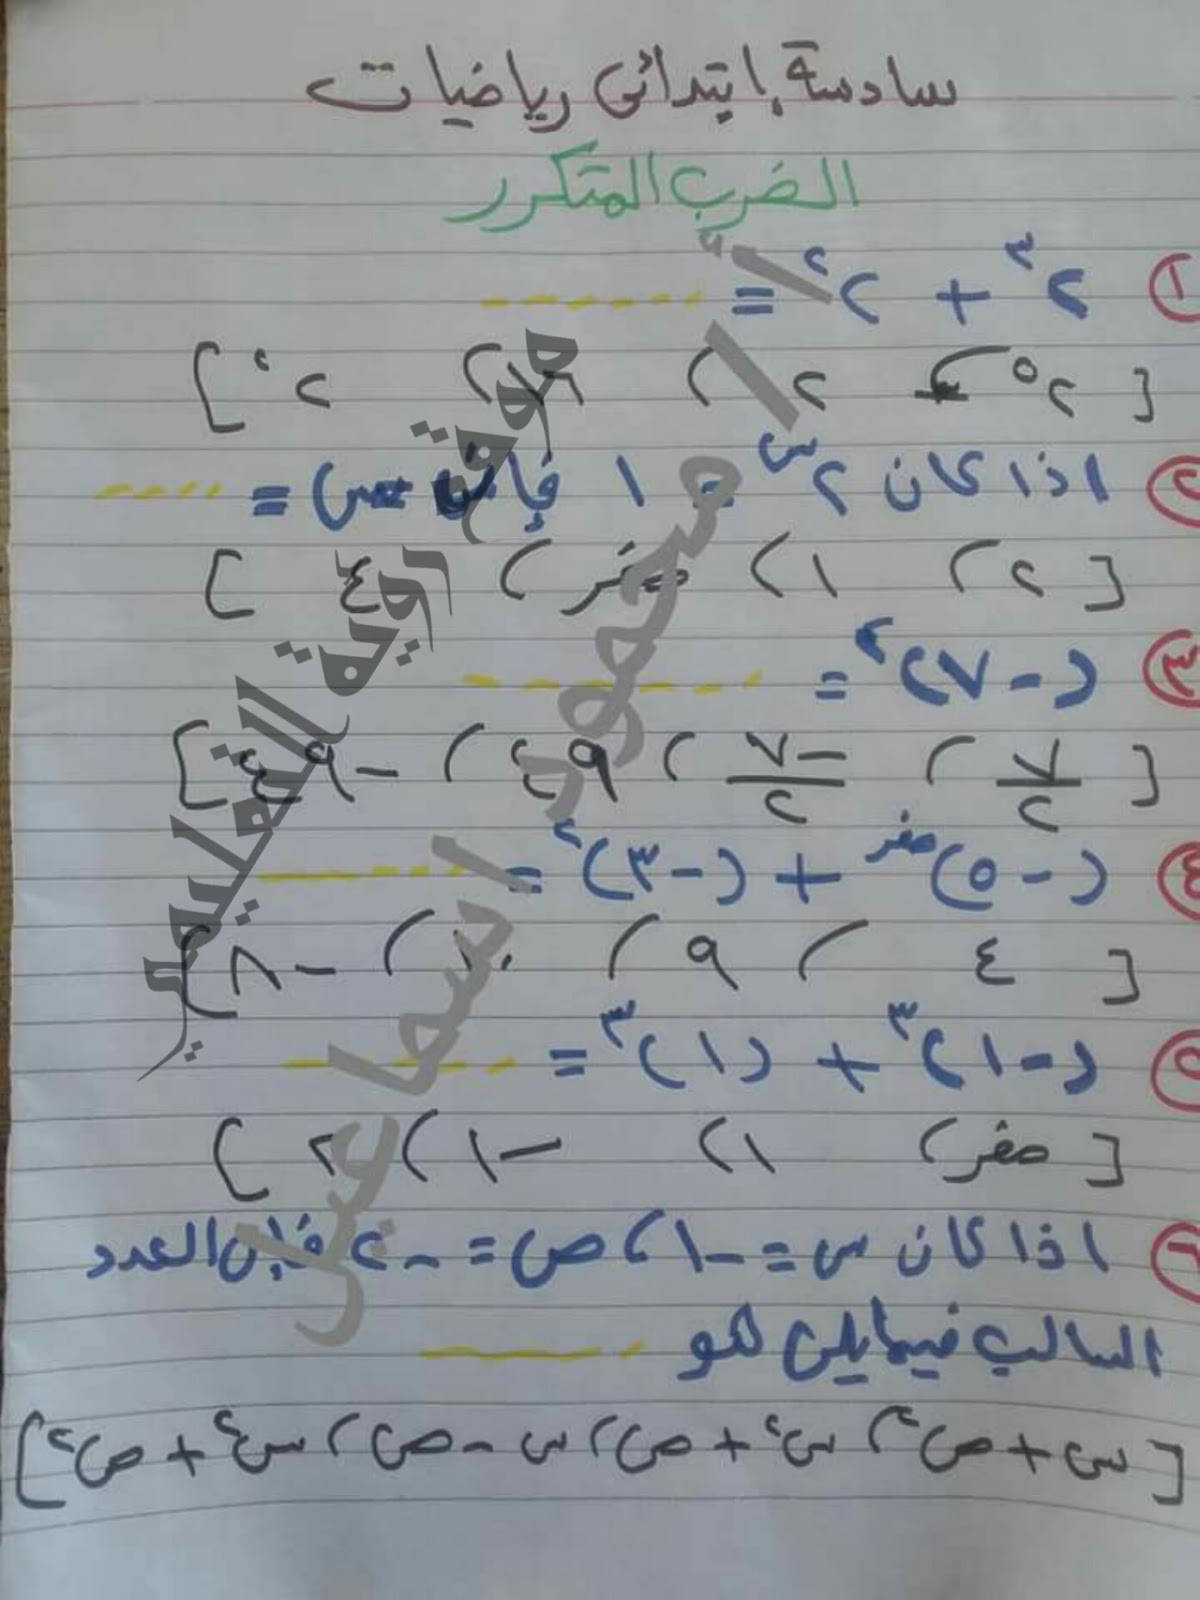 سادسة ابتدائى رياضيات
الضرب المتكرر
١ ٢³ + ٢² =
[ ٢⁵ ، ٢ ، ١٢ ، ٢ ]
٢ اذا كان ٢ˢ = ١ فإن س =
[ ٢ ، ١ ، صفر ، ٤ ]
٣ (-٧)² =
[ ٧/٢ ، -٧/٢ ، ٤٩ ، -٤٩ ]
٤ (-٥)صفر + (-٣)² =
[ ٤ ، ٩ ، ١٠ ، -٨ ]
٥ (-١)³ + (١)³ =
[ صفر ، ١ ، -١ ، ٢ ]
٦ اذا كان س = -١ ، ص = -٢ فإن العدد
السالب فيما يلى هو
[ س + ص² ، س² + ص ، س - ص ، س² + ص² ]
موقع راوية التعليمى
محمود اسماعيل